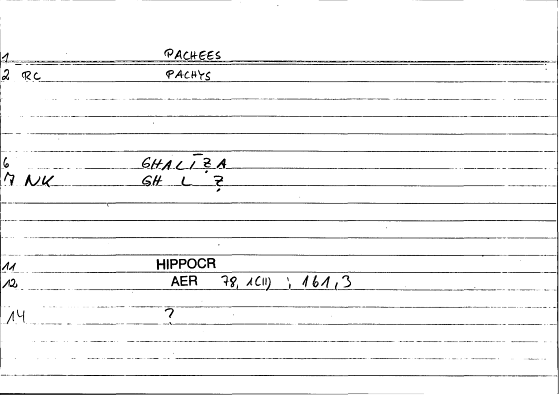 1 PACHEES
2 RC PACHYS
6 GHALĪẒA
7 NK GH L Ẓ
11 HIPPOCR
12 AER 78, 1(11) ; 161,3
14 ?